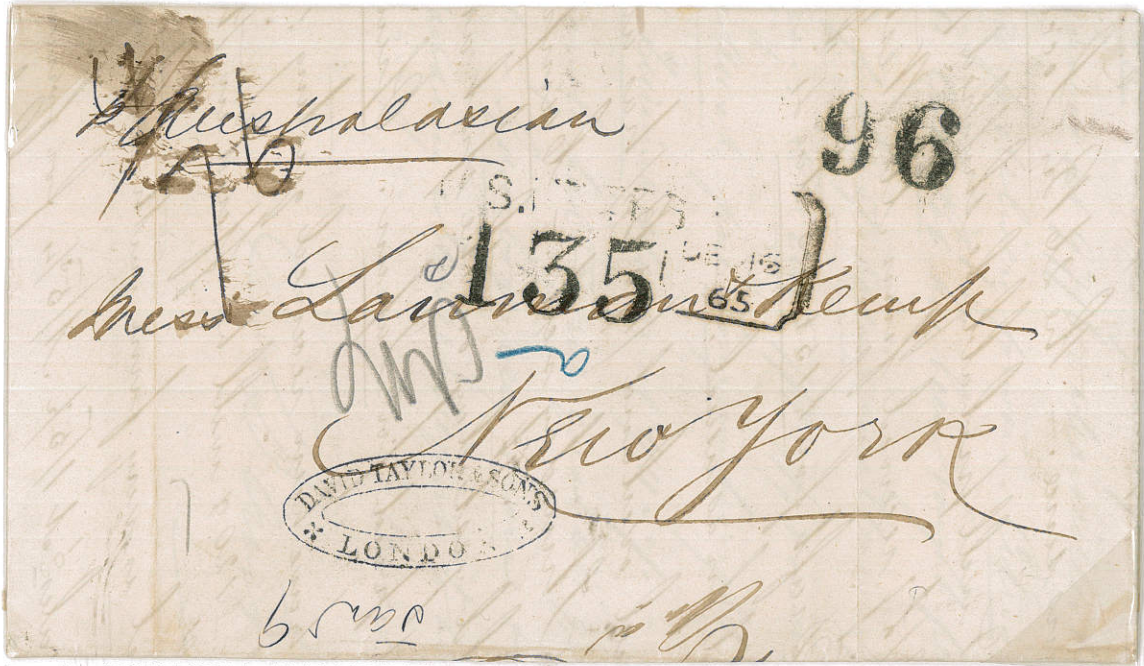 p Australasian
96
135
DE 16
65
Mess Lanman & Kemp
New York
DAVID TAYLOR & SONS
LONDON
Jan 9